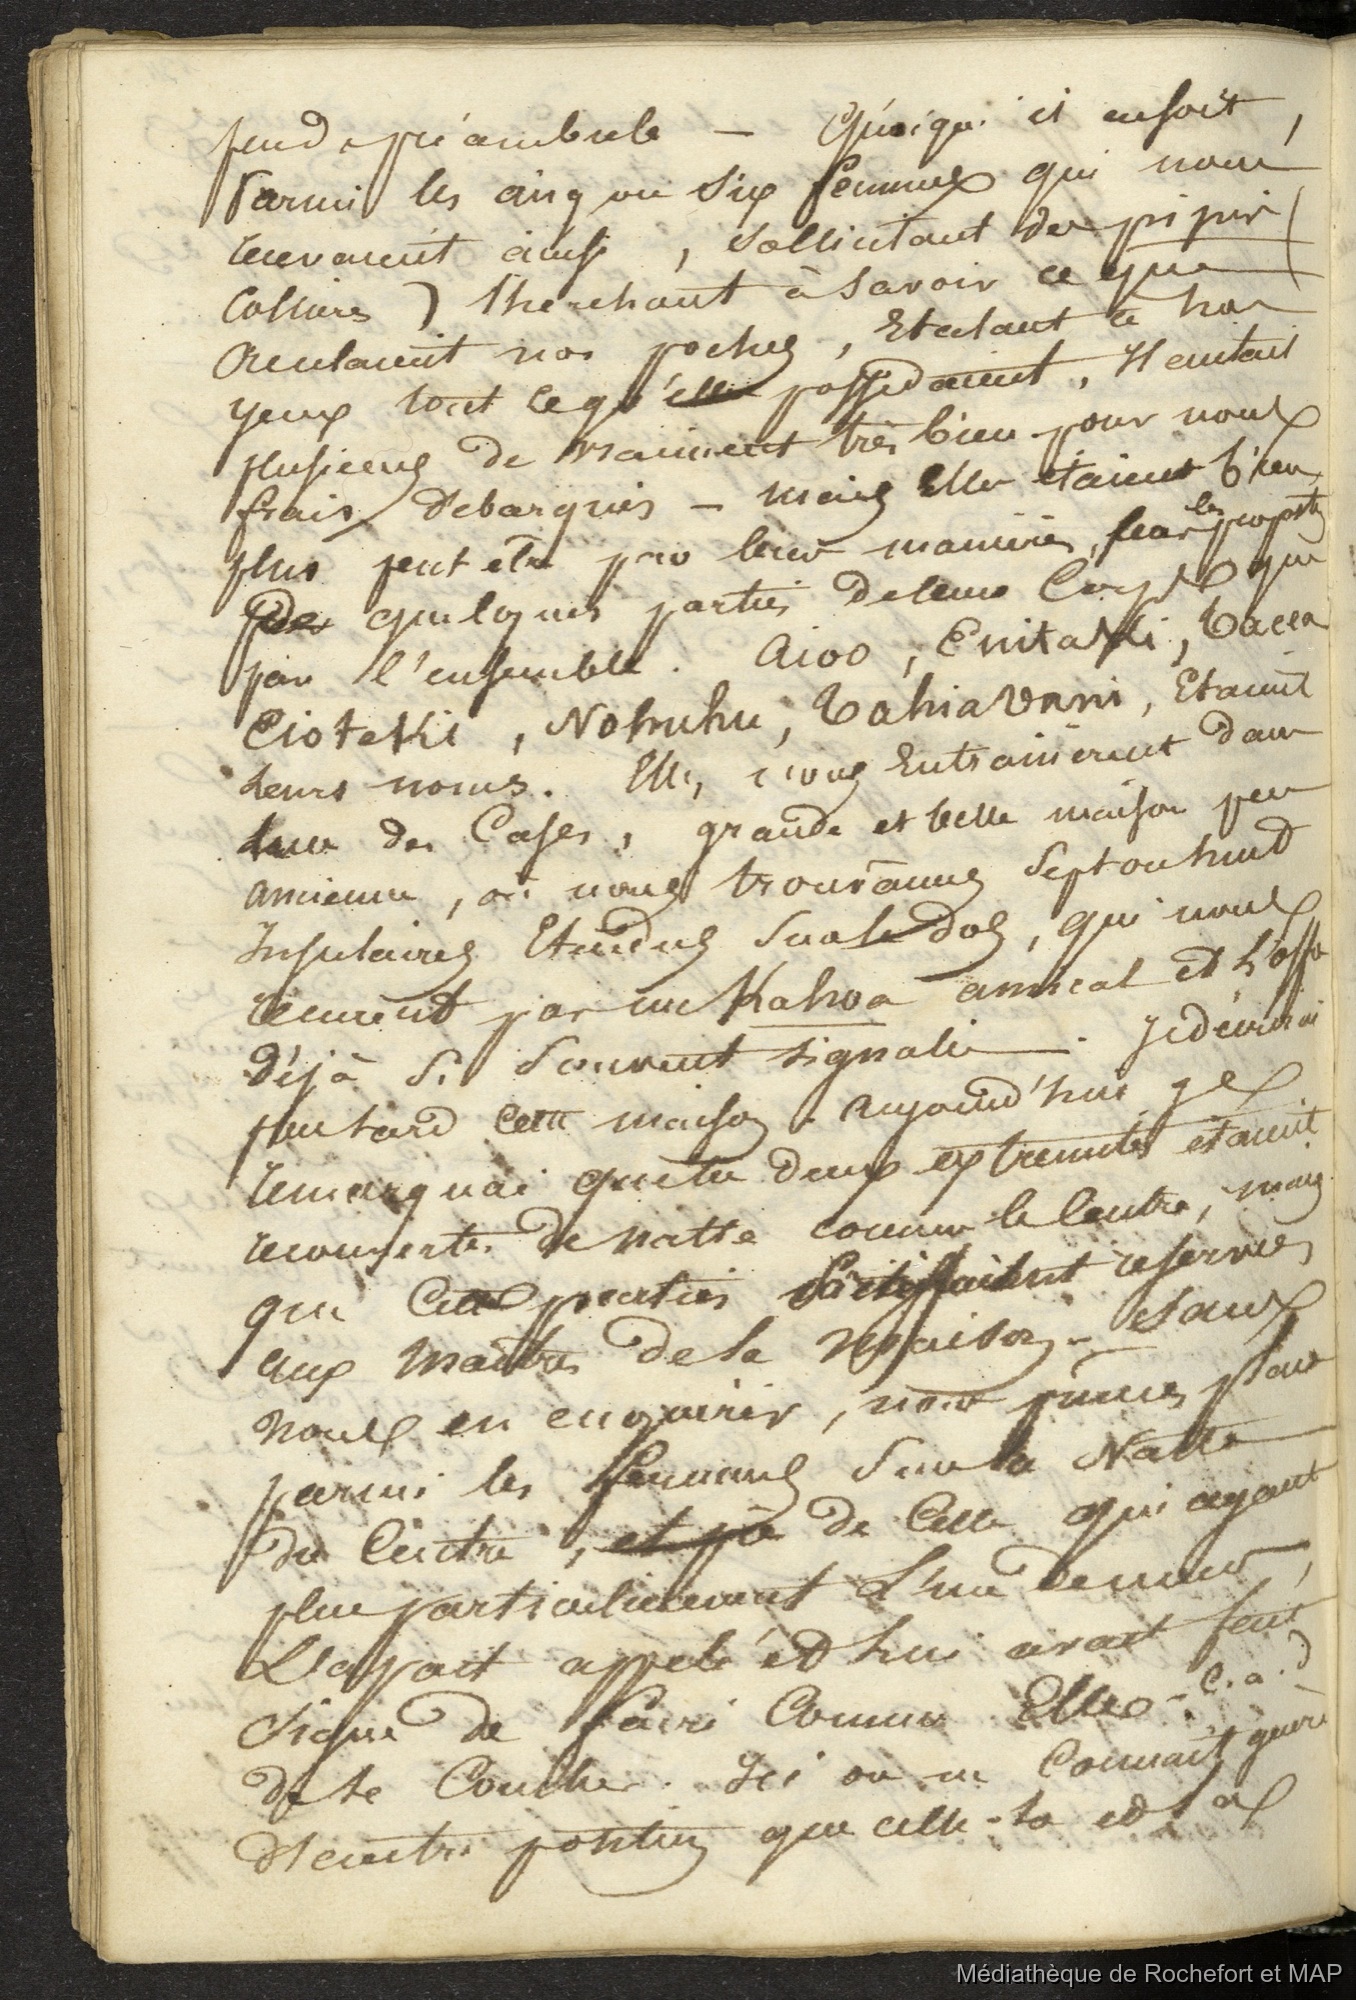 préambule — Quoiqu'il en soit,
Parmi les cinq ou six femmes qui nous
recevaient ainsi, sollicitant des pipir (
Colliers) cherchant à savoir ce que
recelaient nos poches, Etalant à nos
yeux tout ce qu'elles possédaient, Il en était
plusieurs de vraiment très bien pour nous
frais debarqués — mais Elles étaient bien
plus peut être par leurs manières, par les proportions
de quelques parties de leurs Corps que
par l'ensemble. Aioo, Enitaki, Tacea
Eioteki, Nohuhu, Tahiavani, Etaient
leurs noms. Elles nous Entrainèrent dans
une des Cases, grande et belle maison peu
ancienne, où nous trouvâmes Sept ou huit
Insulaires Etendus Sur le dos, qui nous
recurent par un Kahoa amical et
déjà Si Souvent signalé. Je décrirai
plus tard cette maison. Aujourd'hui je
remarquai que les deux extremités étaient
recouvertes de natte comme le Centre, mais
que Cette parties étaient reservées
aux Maitres de la Maison — Sans
nous en enquérir, nous primes place
parmi les femmes Sur la Natte
du Centre, et de Celle qui ayant
plus particulierement L'un de nous,
L'avait appelé et lui avait fait
Signe de faire Comme Elle - C. a. d
de se Coucher. Ici on ne Connait guère
d'autre position que celle-là et la
Médiathèque de Rochefort et MAP